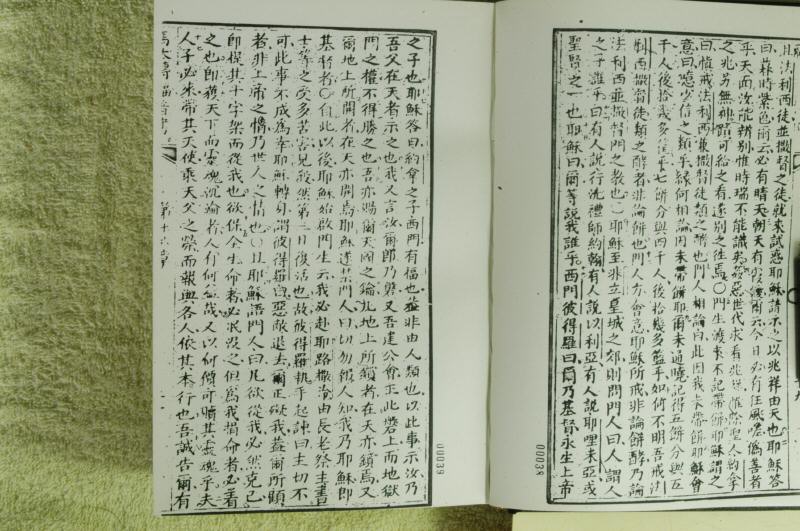 且法利西徒並撒督之徒就來試惑耶穌請示之以兆祥由天也耶穌答
曰暮時紫色爾云必有晴天朝天有
乎天面汝能辨別惟時瑞不能識為姦惡世代求看兆
之兆另無神蹟可給之看遂別之往焉○門生渡來不記帶餅耶穌謂之
曰慎戒法利西兼撒督徒類之酵也門人相論曰此因我未帶餅耶穌會
意曰噫少信之類乎緣何相論因未帶餅耶爾未通曉記得五餅分與五
千人後拾幾多筐乎七餅分與四千人後拾幾多籃乎如何不明吾戒法
利西撒督徒類之酵者非論餅也門人方會意耶穌所戒非論餅酵乃論
法利西並撒督門之教也○耶穌至非立皇城之郊則問門人曰人謂人
之子誰乎曰有人說行洗禮師約翰有人說以利亞有人說耶哩米亞或
聖賢之一也耶穌曰爾等說我誰乎西門彼得羅曰爾乃基督永生上帝
00038
之子也耶穌答曰約拿之子西門有福也蓋非由人類也以此事示汝乃
吾父在天者示之也我又言汝爾即乃磐又吾建公會正此磐上而地獄
門之權不得勝之也吾亦賜爾天國之鑰凡地上所鎖者在天亦鎖焉又
爾地上所開者在天亦開焉耶穌遂禁門人曰切勿報人知我乃耶穌即
基督者○自此以後耶穌始啟門生云我必赴耶路撒冷由長老祭主書
士等之受多苦害見殺然第三日復活也故彼得羅執手起諫曰主切不
可此事不成焉幸耶穌轉身謂彼得羅曰惡敵退去爾正礙我蓋爾所願
者非上帝之
即提其十字架而從我也欲保全生命者必泯沒之但為我捐命者必著
之也即獲天下而靈魂沉淪者人有何益哉又以何償可贖其靈魂乎夫
人子必來帶其天使乘天父之榮而報與各人依其本行也吾誠告爾有
00039